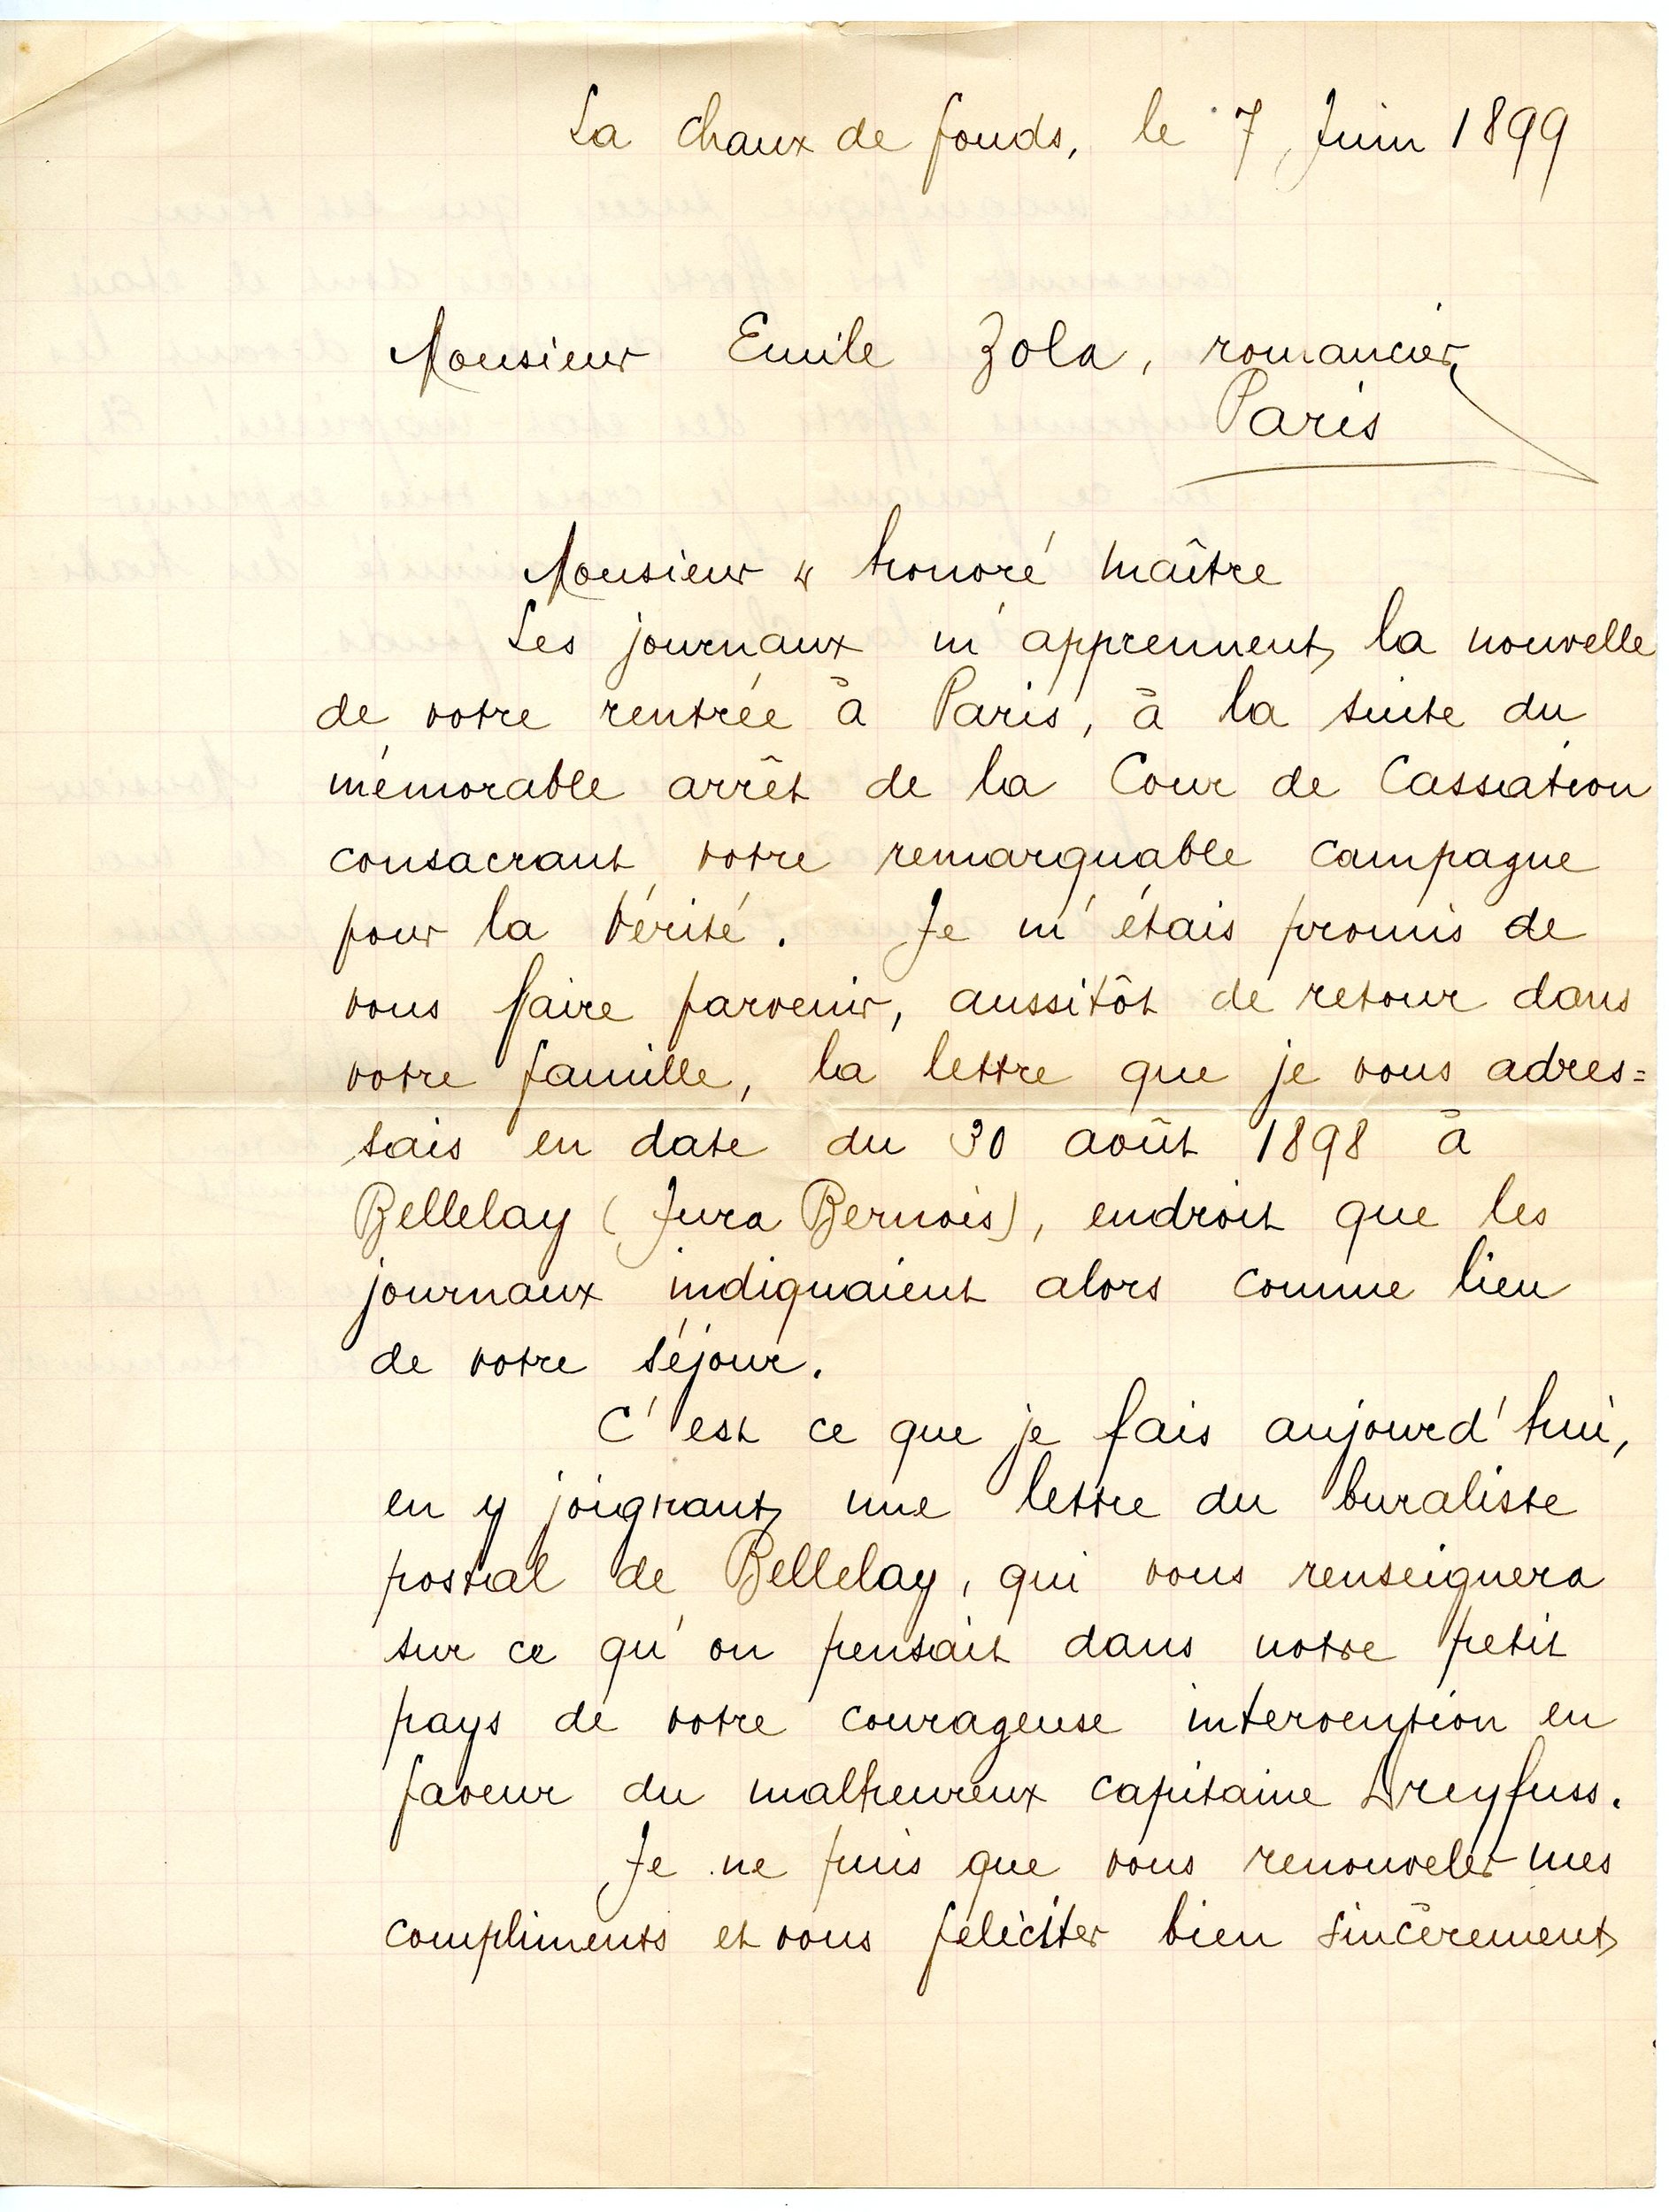 La Chaux de fonds, le 7 Juin 1899
Monsieur Emile Zola, romancier,
Paris
Monsieur & honoré Maître
Les journaux m'apprennent la nouvelle
de votre rentrée à Paris, à la suite du
mémorable arrêt de la Cour de Cassation
consacrant votre remarquable campagne
pour la Vérité. Je m'étais promis de
vous faire parvenir, aussitôt de retour dans
votre famille, la lettre que je vous adres=
sais en date du 30 août 1898 à
Bellelay (Jura Bernois), endroit que les
journaux indiquaient alors comme lieu
de votre séjour.
C'est ce que je fais aujourd'hui,
en y joignant une lettre du buraliste
postal de Bellelay, qui vous renseignera
sur ce qu'on pensait dans notre petit
pays de votre courageuse intervention en
faveur du malheureux capitaine Dreyfuss.
Je ne puis que vous renouveler mes
compliments et vous féliciter bien sincèrement